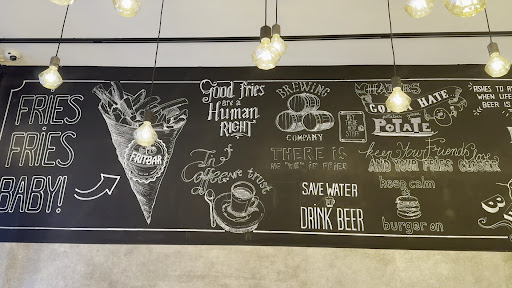 FRIES
FRIES
BABY!
FATBAR
Good fries
are a
Human
RIGHT
In
Coffee
we trust
BREWING
COMPANY
THERE IS
NO "WE" IN FRIES
SAVE WATER
DRINK BEER
HATERS
GONNA HATE
POTATE
keep Your Friends Close
AND YOUR FRIES CLOSER
keep calm
burger on
ASHES TO AS
WHEN LIFE
BEER IS